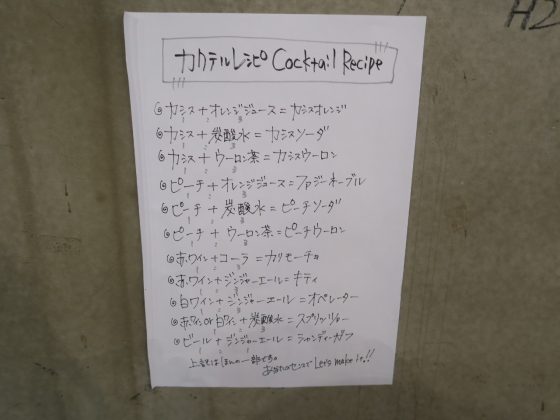 H2
カクテルレシピ Cocktail Recipe
◎カシス+オレンジジュース=カシスオレンジ
◎カシス+炭酸水=カシスソーダ
◎カシス+ウーロン茶=カシスウーロン
◎ピーチ+オレンジジュース=ファジーネーブル
◎ピーチ+炭酸水=ピーチソーダ
◎ピーチ+ウーロン茶=ピーチウーロン
◎赤ワイン+コーラ=カリモーチョ
◎赤ワイン+ジンジャーエール=キティ
◎白ワイン+ジンジャーエール=オペレーター
◎赤ワインor白ワイン+炭酸水=スプリッツァー
◎ビール+ジンジャーエール=シャンディーガフ
上記はほんの一部です。
あなたのセンスで Let's make it!!